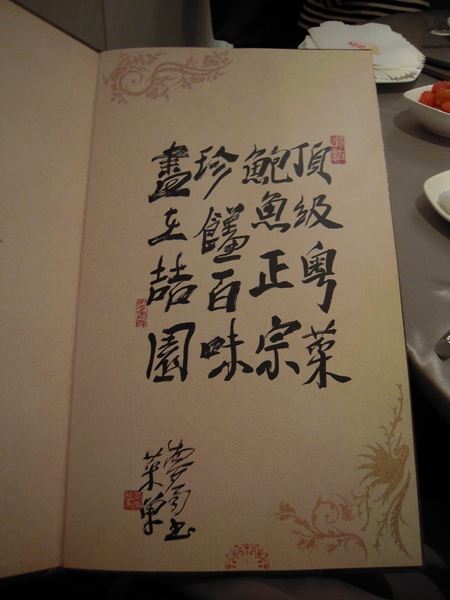 頂級粵菜
鮑魚正宗
珍饈百味
盡在喆園
菜單